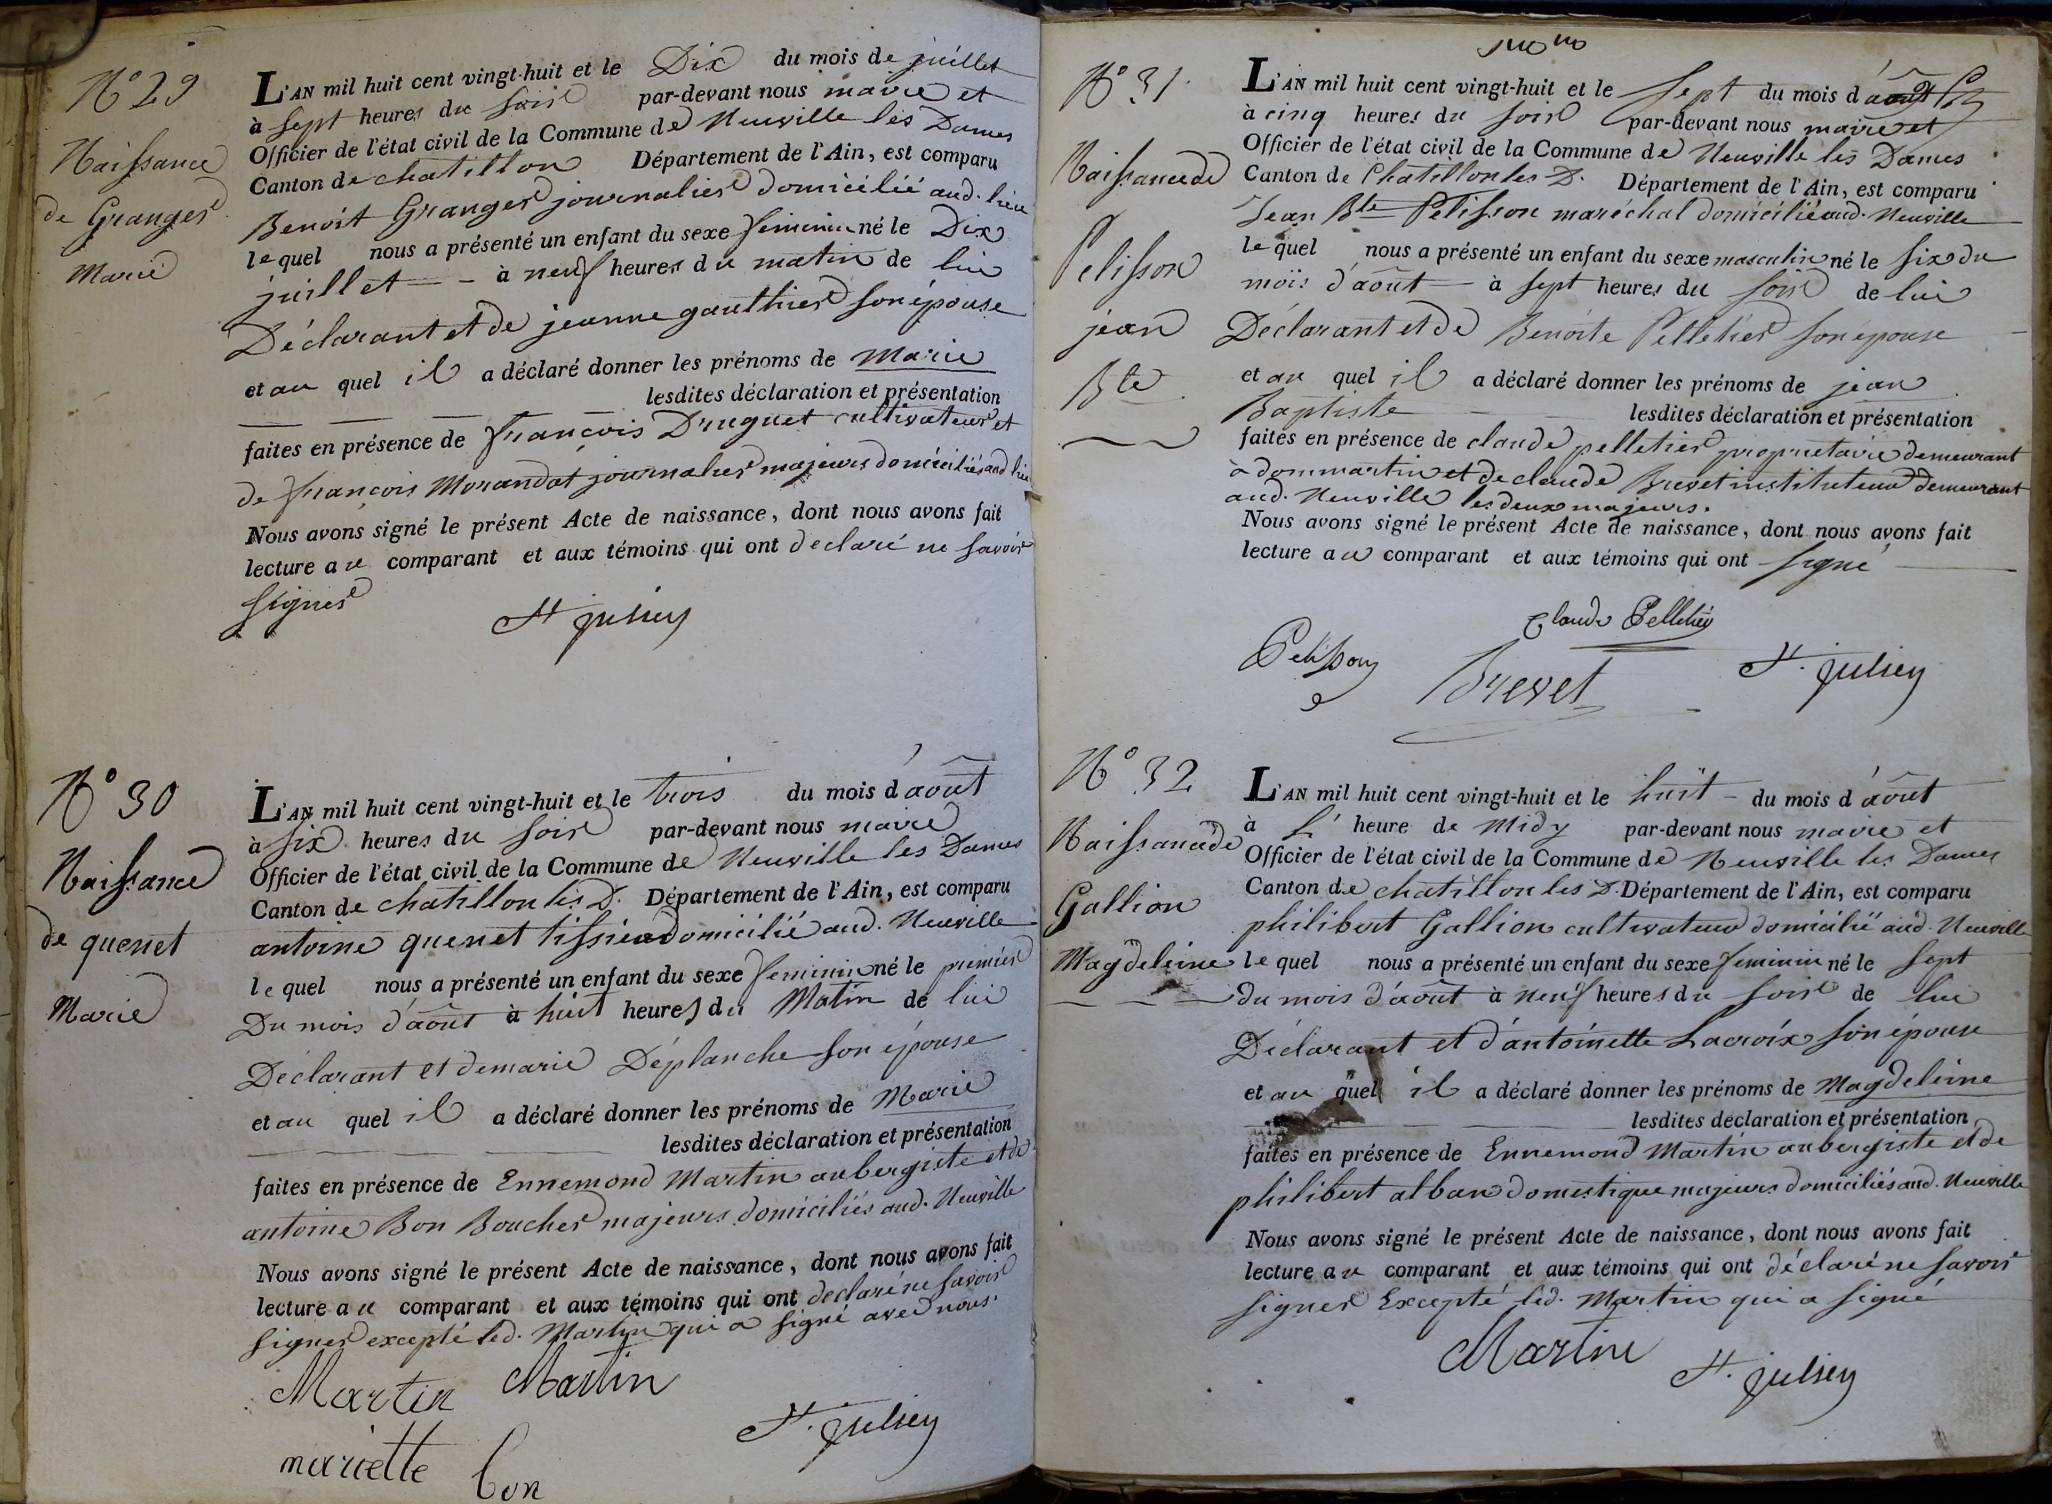 N° 29
Naissance
de Granger
Marie
L'AN mil huit cent vingt-huit et le Dix du mois de juillet
à sept heures du soir par-devant nous maire et
Officier de l'état civil de la Commune de Neuville les Dames
Canton de chatillon Département de l'Ain, est comparu
Benoit Granger journalier domicilié aud. lieu
lequel nous a présenté un enfant du sexe feminin né le Dix
juillet à neuf heures du matin de lui
Déclarant et de jeanne gauthier son épouse
et au quel il a déclaré donner les prénoms de Marie
lesdites déclaration et présentation
faites en présence de françois Druguet cultivateur et
de françois Morandat journalier majeurs domiciliés aud lieu
Nous avons signé le présent Acte de naissance, dont nous avons fait
lecture au comparant et aux témoins qui ont declaré ne savoir
signer
St julien
N° 30
Naissance
de quenet
Marie
L'AN mil huit cent vingt-huit et le trois du mois d'août
à six heures du soir par-devant nous maire
Officier de l'état civil de la Commune de Neuville les Dames
Canton de chatillon les D. Département de l'Ain, est comparu
antoine quenet tissier domicilié aud. Neuville
lequel nous a présenté un enfant du sexe feminin né le premier
Du mois d'août à huit heures du Matin de lui
Déclarant et de marie Déplanche son épouse
et au quel il a déclaré donner les prénoms de Marie
lesdites déclaration et présentation
faites en présence de Ennemond Martin aubergiste et de
antoine Bon Boucher majeurs domiciliés aud. Neuville
Nous avons signé le présent Acte de naissance, dont nous avons fait
lecture au comparant et aux témoins qui ont declaré ne savoir
signer excepté led. Martin qui a signé avec nous.
Martin Martin
St. julien
mariette bon
N° 31.
Naissance de
Pelisson
jean
Bte
L'AN mil huit cent vingt-huit et le sept du mois d'août
à cinq heures du soir par-devant nous maire et
Officier de l'état civil de la Commune de Neuville les Dames
Canton de Chatillon les D. Département de l'Ain, est comparu
Jean Bte Pelisson maréchal domicilié aud. Neuville
lequel nous a présenté un enfant du sexe masculin né le six du
mois d'août à sept heures du soir de lui
Déclarant et de Benoite Pelletier son épouse
et au quel il a déclaré donner les prénoms de jean
Baptiste lesdites déclaration et présentation
faites en présence de claude pelletier propriétaire demeurant
à dommartin et de claude Brevet instituteur demeurant
aud. Neuville les deux majeurs.
Nous avons signé le présent Acte de naissance, dont nous avons fait
lecture au comparant et aux témoins qui ont signé
Claude Pelletier
Pelisson Brevet St. julien
N° 32
Naissance de
Gallion
Magdeleine
L'AN mil huit cent vingt-huit et le huit du mois d'août
à L' heure de Midy par-devant nous maire et
Officier de l'état civil de la Commune de Neuville les Dames
Canton de chatillon les D. Département de l'Ain, est comparu
philibert Gallion cultivateur domicilié aud. Neuville
lequel nous a présenté un enfant du sexe feminin né le sept
du mois d'août à neuf heures du soir de lui
Déclarant et d'antoinette Lacroix son épouse
et au quel il a déclaré donner les prénoms de Magdeleine
lesdites déclaration et présentation
faites en présence de Ennemond Martin aubergiste et de
philibert alban domestique majeurs domiciliés aud. Neuville
Nous avons signé le présent Acte de naissance, dont nous avons fait
lecture au comparant et aux témoins qui ont déclaré ne savoir
signer Excepté led. Martin qui a signé
Martin
St. julien